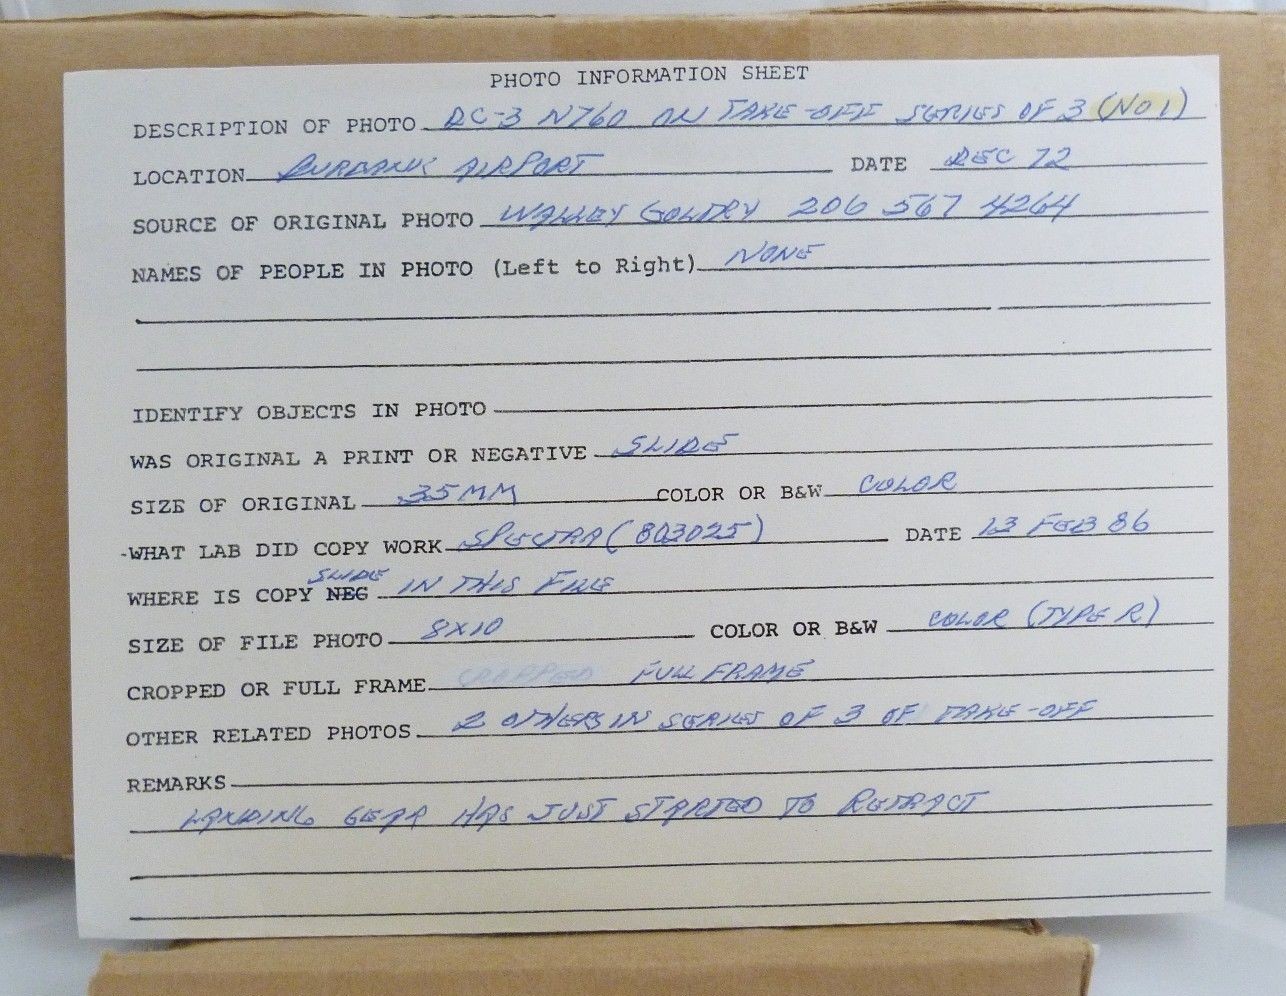 PHOTO INFORMATION SHEET
DESCRIPTION OF PHOTO DC-3 N760 ON TAKE-OFF SERIES OF 3 (NO 1)
LOCATION BURBANK AIRPORT DATE DEC 72
SOURCE OF ORIGINAL PHOTO 206 567 4264
NAMES OF PEOPLE IN PHOTO (Left to Right) NONE
IDENTIFY OBJECTS IN PHOTO
WAS ORIGINAL A PRINT OR NEGATIVE SLIDE
SIZE OF ORIGINAL 35MM COLOR OR B&W COLOR
-WHAT LAB DID COPY WORK SPECTRA (803025) DATE 13 FEB 86
SLIDE
WHERE IS COPY NEG IN THIS FILE
SIZE OF FILE PHOTO 8X10 COLOR OR B&W COLOR (TYPE R)
CROPPED OR FULL FRAME CROPPED FULL FRAME
OTHER RELATED PHOTOS 2 OTHERS IN SERIES OF 3 OF TAKE-OFF
REMARKS
LANDING GEAR HAS JUST STARTED TO RETRACT